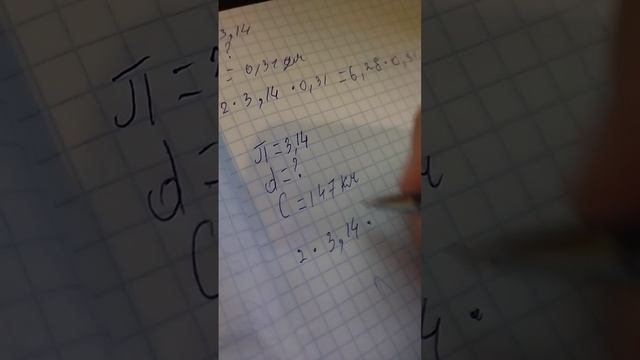 3,14
?
= 0,31 дм
2 · 3,14 · 0,31 = 6,28 · 0,31
П = 3,14
d = ?
C = 147 км
2 · 3,14 ·